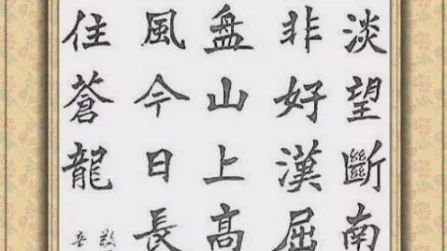 淡望斷南
非好漢屈
盤山上高
風今日長
住蒼龍